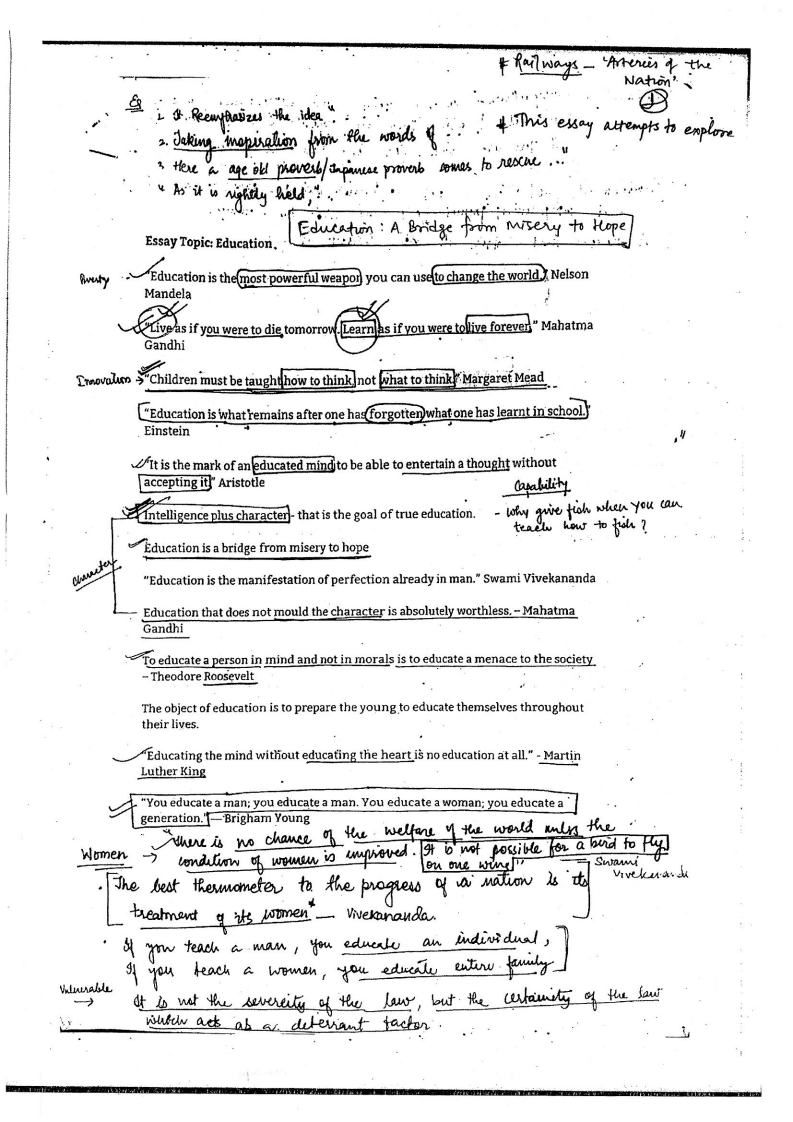 # Railways – 'Arteries of the
Nation'
①
Eg
1. It Reemphasizes the idea "
2. Taking inspiration from the words of
# This essay attempts to explore
3. Here a age old proverb/Japanese proverb comes to rescue ..."
4. As it is rightly held,"
Education : A Bridge from Misery to Hope
Essay Topic: Education.
Poverty
"Education is the most powerful weapon you can use to change the world." Nelson
Mandela
"Live as if you were to die tomorrow. Learn as if you were to live forever." Mahatma
Gandhi
Innovation →
"Children must be taught how to think, not what to think." Margaret Mead
"Education is what remains after one has forgotten what one has learnt in school."
Einstein
"It is the mark of an educated mind to be able to entertain a thought without
accepting it." Aristotle
Capability
Intelligence plus character - that is the goal of true education.
- Why give fish when you can
teach how to fish ?
Education is a bridge from misery to hope
Character
"Education is the manifestation of perfection already in man." Swami Vivekananda
Education that does not mould the character is absolutely worthless. – Mahatma
Gandhi
To educate a person in mind and not in morals is to educate a menace to the society
– Theodore Roosevelt
The object of education is to prepare the young to educate themselves throughout
their lives.
"Educating the mind without educating the heart is no education at all." - Martin
Luther King
"You educate a man; you educate a man. You educate a woman; you educate a
generation." — Brigham Young
Women →
"There is no chance of the welfare of the world unless the
condition of women is improved. It is not possible for a bird to fly
on one wing"
Swami
Vivekananda
. The best thermometer to the progress of a nation is its
treatment of its women" – Vivekananda.
. If you teach a man, you educate an individual,
If you teach a women, you educate entire family
Vulnerable
→
It is not the severeity of the law, but the certainity of the law
which act as a deterrant factor.